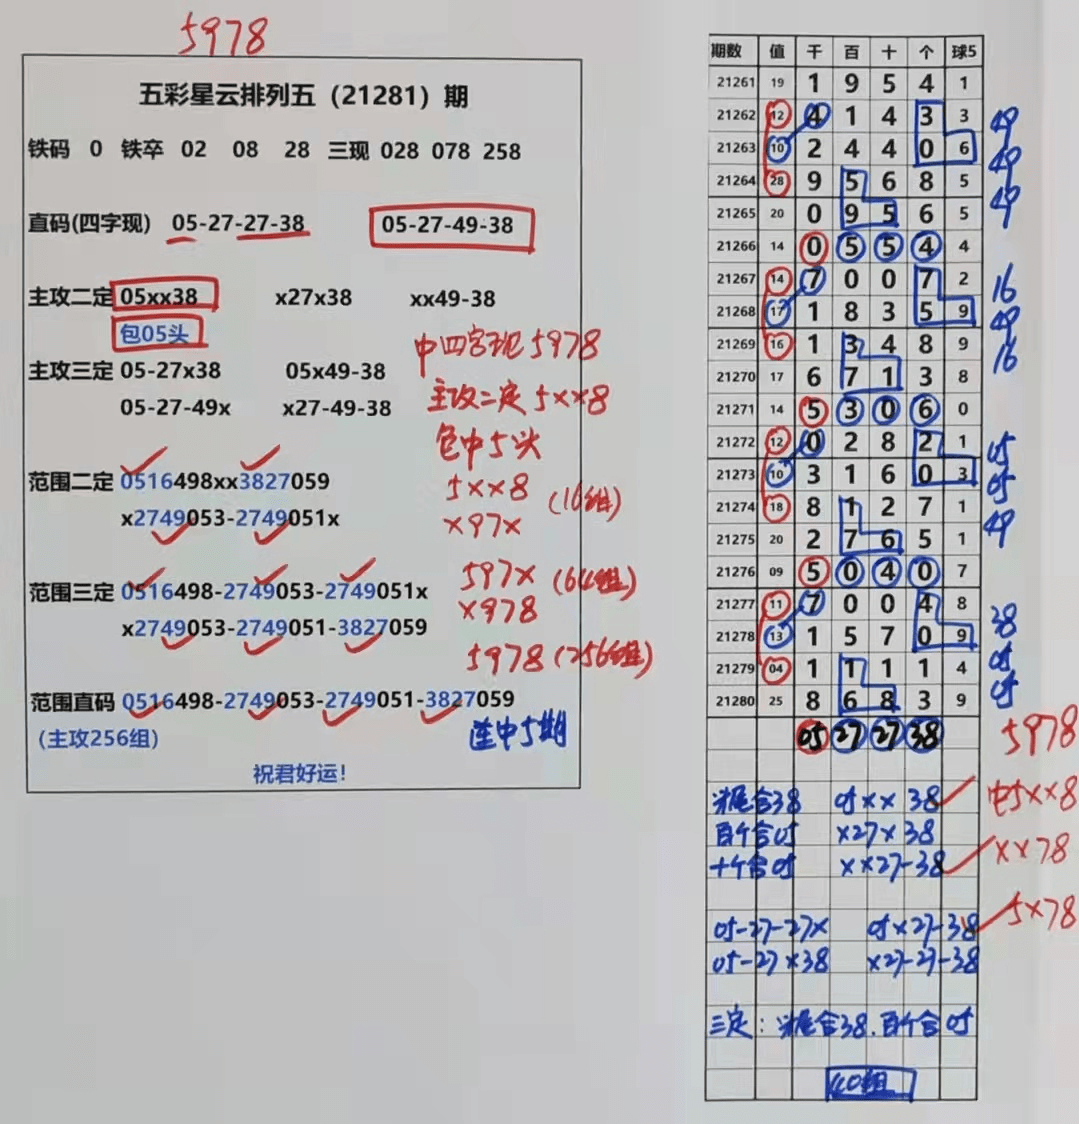 5978
五彩星云排列五（21281）期
铁码 0 铁卒 02 08 28 三现 028 078 258
直码(四字现) 05-27-27-38 05-27-49-38
主攻二定 05xx38 x27x38 xx49-38
包05头
主攻三定 05-27x38 05x49-38
05-27-49x x27-49-38
中四字现5978
主攻二定5xx8
包中5头
范围二定 0516498xx3827059
x2749053-2749051x
5xx8 (16组)
x97x
范围三定 0516498-2749053-2749051x
x2749053-2749051-3827059
597x (64组)
x978
5978 (256组)
范围直码 0516498-2749053-2749051-3827059
（主攻256组）
连中5期
祝君好运！
期数 值 千 百 十 个 球5
21261 19 1 9 5 4 1
21262 12 4 1 4 3 3 49
21263 10 2 4 4 0 6 49
21264 28 9 5 6 8 5 49
21265 20 0 9 5 6 5
21266 14 0 5 5 4 4
21267 14 7 0 0 7 2 16
21268 17 1 8 3 5 9 49
21269 16 1 3 4 8 9 16
21270 17 6 7 1 3 8
21271 14 5 3 0 6 0
21272 12 0 2 8 2 1 05
21273 10 3 1 6 0 3 05
21274 18 8 1 2 7 1 49
21275 20 2 7 6 5 1
21276 09 5 0 4 0 7
21277 11 7 0 0 4 8 38
21278 13 1 5 7 0 9 05
21279 04 1 1 1 1 4 05
21280 25 8 6 8 3 9
05 27 27 38 5978
头尾合38 05xx38 中5xx8
百个合05 x27x38
十个合05 xx27-38 xx78
05-27-27x 05x27-38 5x78
05-27x38 x27-27-38
三定：头尾合38.百个合05
40组